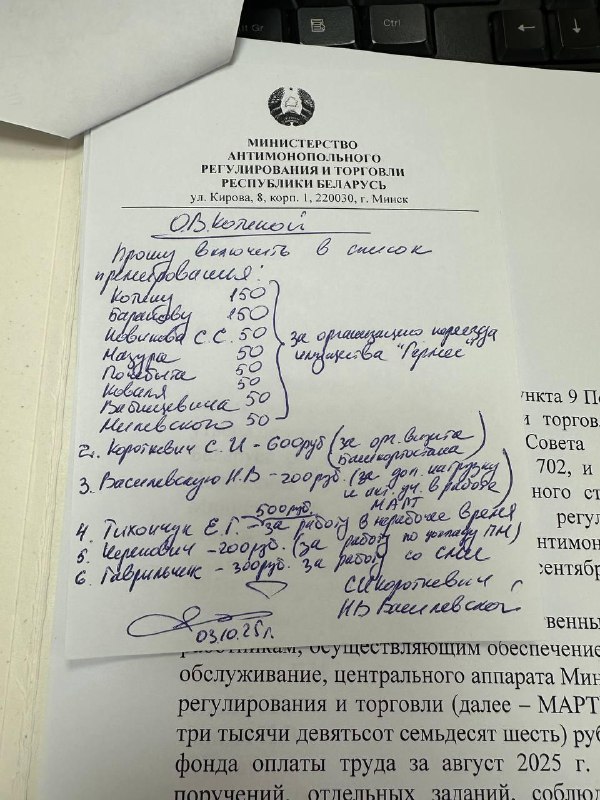 Gr
Ctrl
МИНИСТЕРСТВО
АНТИМОНОПОЛЬНОГО
РЕГУЛИРОВАНИЯ И ТОРГОВЛИ
РЕСПУБЛИКИ БЕЛАРУСЬ
ул. Кирова, 8, корп. 1, 220030, г. Минск
О.В. Копиной
Прошу включить в список
премирования:
Копину 150
Баранову 150
Новикова С.С. 50
Мазура 50
Почебыта 50
Коваля 50
Бабицевича 50
Милевского 50
за организацию переезда
имущества "Гермес"
2. Короткевич С.И - 600 руб (за орг. визита
Башкортостана)
3. Василевскую Н.В - 200 руб. (за доп. нагрузку
и уч. в работе
МАРТ)
500 руб.
4. Тихончук Е.Г. - за работу в нерабочее время
5. Черепович - 200 руб. (за работу по докладу ПМ)
6. Гаврильчик - 300 руб. за работу со СМИ
С.И Короткевич
Н.В Василевской
03.10.25 г.
ункта 9 По
и торговл
Совета
702, и
ного ст
регул
нтимон
сентябр
твенны
работникам, осуществляющим обеспечение
обслуживание, центрального аппарата Мин
регулирования и торговли (далее – МАРТ
три тысячи девятьсот семьдесят шесть) руб
фонда оплаты труда за август 2025 г.
поручений, отдельных заданий, соблюд